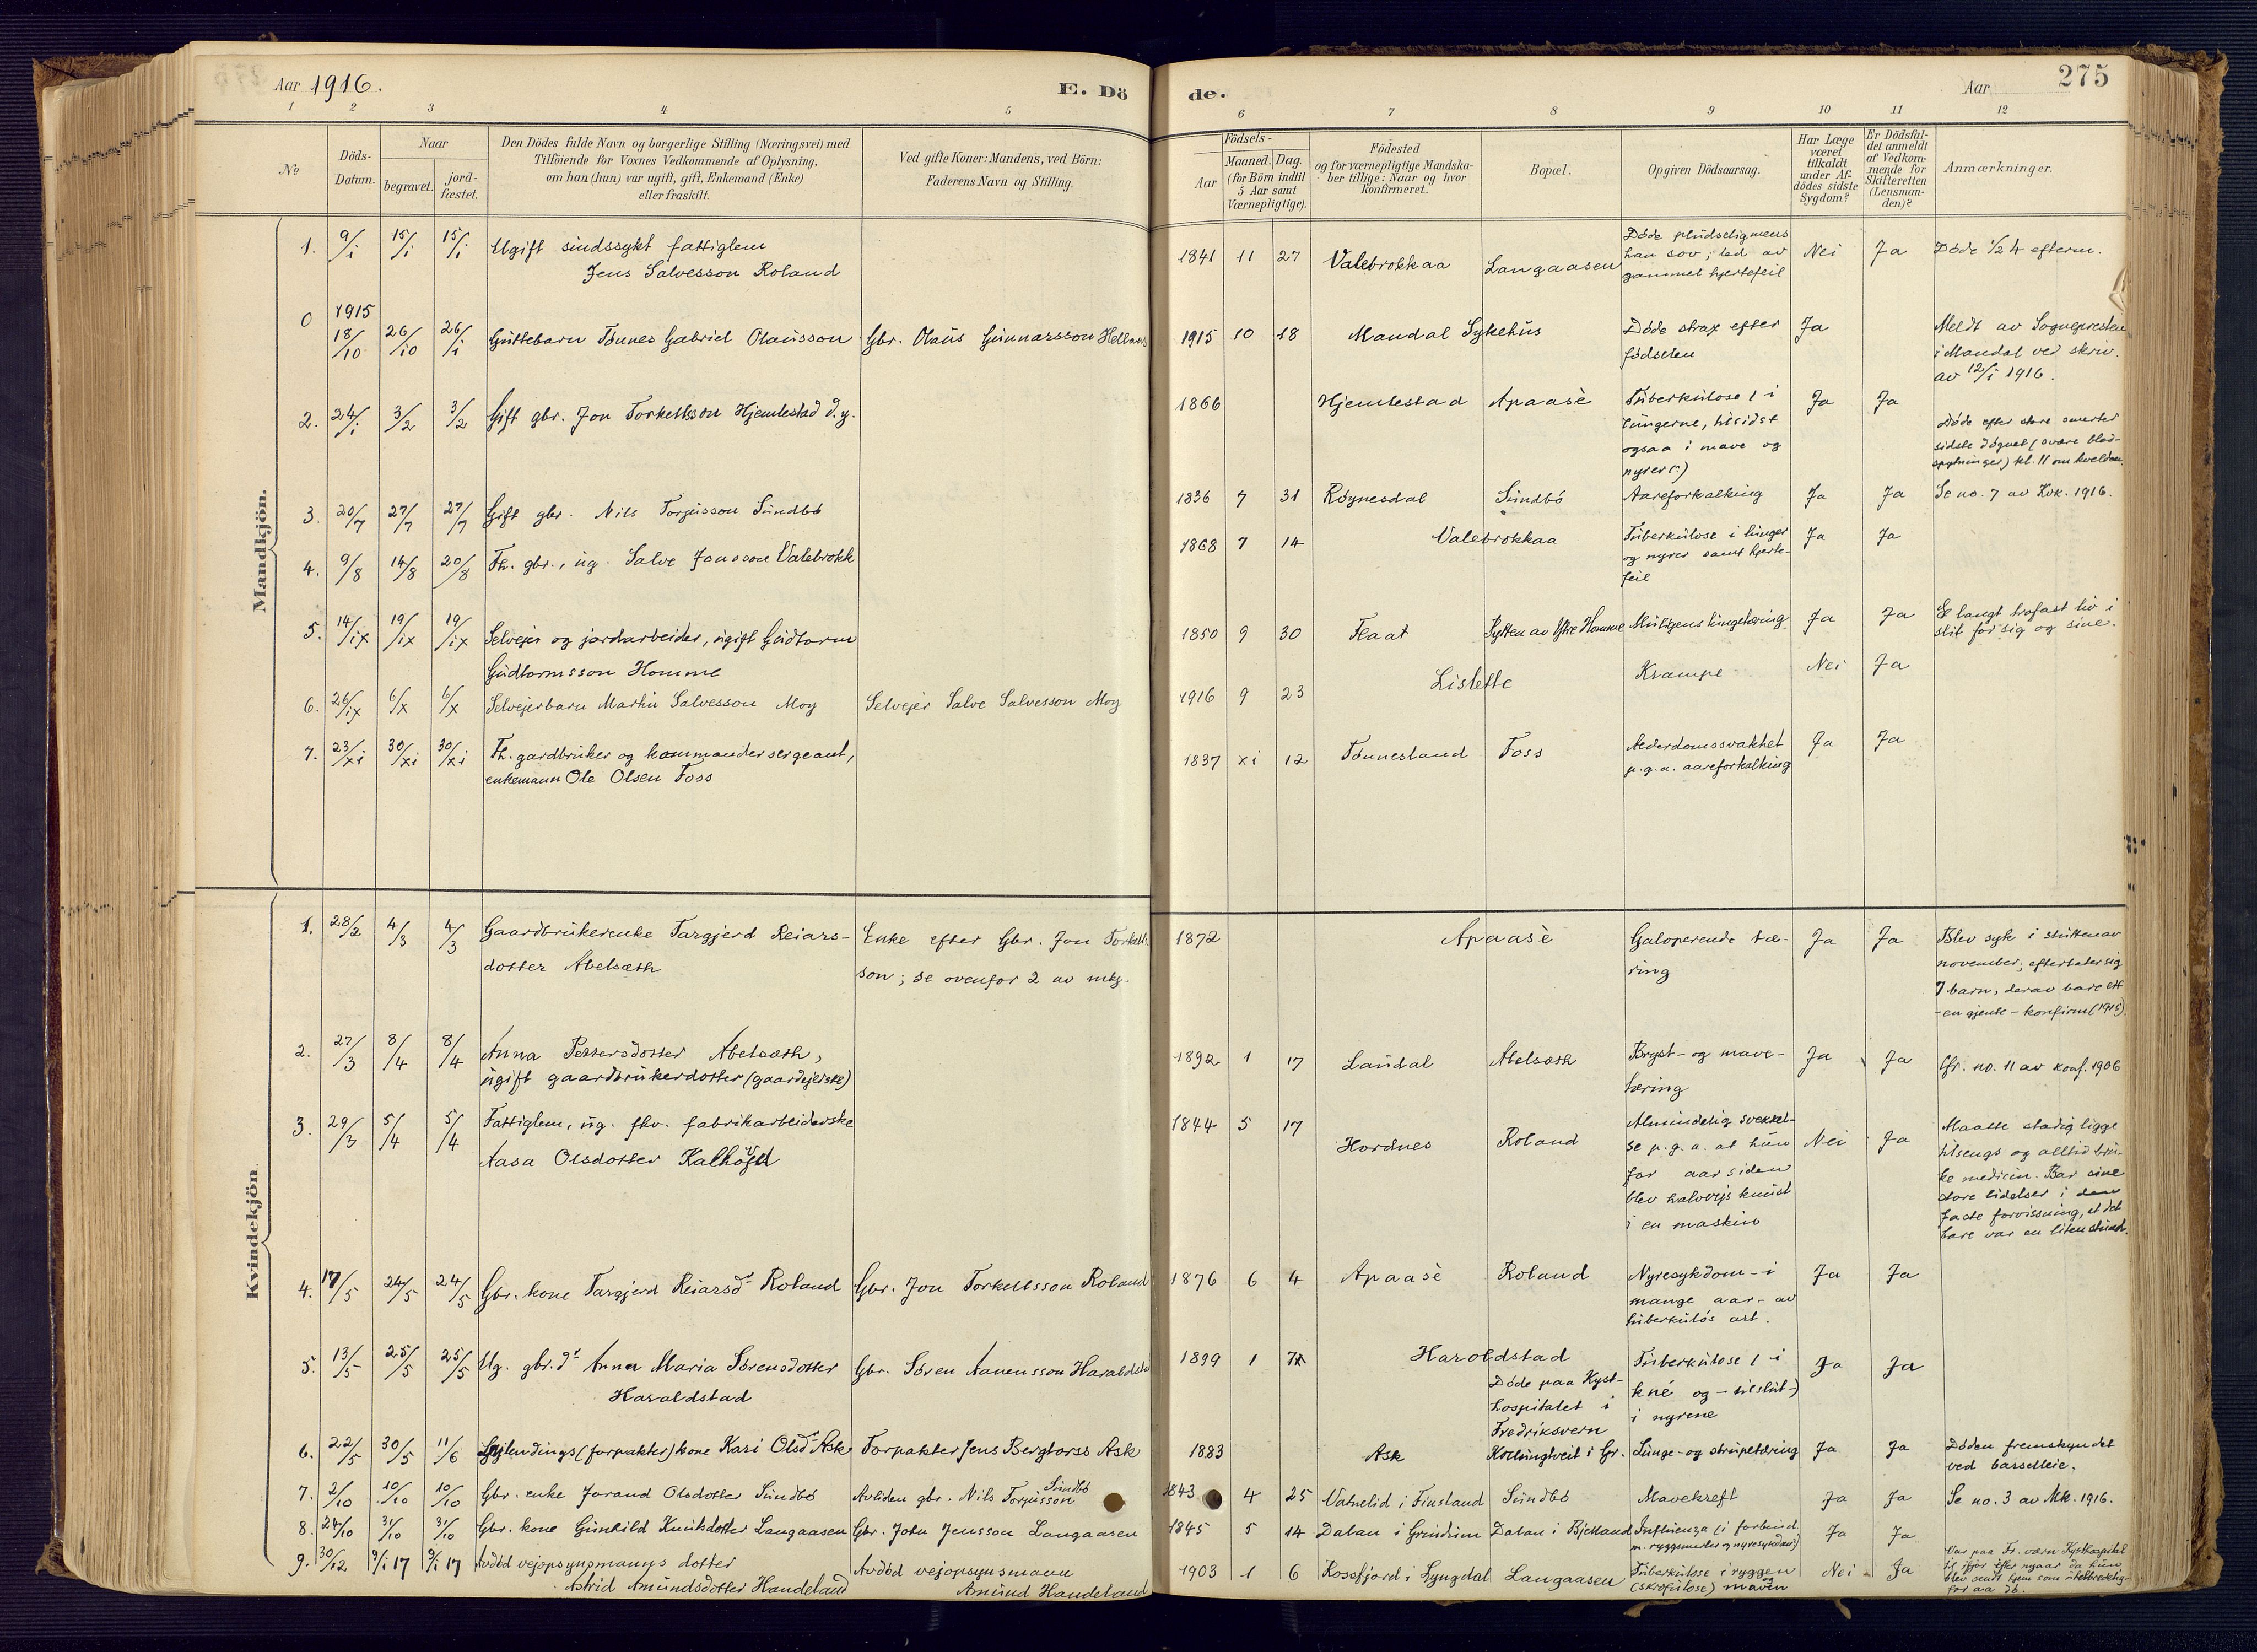 Aar 1916. E. Dö de. Aar 275
1 2 3 4 5 6 7 8 9 10 11 12
№
Döds-Datum.
Naar
begravet. jord-fæstet.
Den Dödes fulde Navn og borgerlige Stilling (Næringsvei) med
Tilföiende for Voxnes Vedkommende af Oplysning,
om han (hun) var ugift, gift, Enkemand (Enke)
eller fraskilt.
Ved gifte Koner: Mandens, ved Börn:
Faderens Navn og Stilling.
Födsels-
Aar Maaned. Dag.
(for Börn indtil
5 Aar samt
Værnepligtige).
Födested
og for værnepligtige Mandska-
ber tillige: Naar og hvor
konfirmeret.
Bopæl.
Opgiven Dödsaarsag.
Har Læge
været
tilkaldt
under Af-
dödes sidste
Sygdom?
Er Dödsfal-
det anmeldt
af Vedkom-
mende for
Skifteretten
(Lensman-
den)?
Anmærkninger.
Mandkjön.
1. 9/i 15/i 15/i Ugift sindssykt fattiglem
Jens Salvesson Roland
1841 11 27 Valebrokkaa Langaasen
Døde pludselig mens
han sov; led av
gammel hjertefeil
Nei Ja Døde 1/2 4 efterm.
0 1915
18/10 26/10 26/i Guttebarn Tønnes Gabriel Olausson Gbr. Olaus Gunnarsson Helland
1915 10 18 Mandal Sykehus
Døde strax efter
fødselen
Ja
Meldt av Sognepresten
i Mandal ved skriv.
av 12/i 1916.
2. 24/i 3/2 3/2 Gift gbr. Jon Torkellsson Hjemlestad d.y.
1866 Hjemlestad Apaasè
Tuberkulose (- i
lungerne, tilsidst
ogsaa i mave og
nyrer(?)
Ja Ja
Døde efter store smerter
sidste døgnet (svære blod-
spytninger) kl. 11 om kvelden.
3. 20/7 27/7 27/7 Gift gbr. Nils Torjusson Sundbø
1836 7 31 Røynesdal Sundbø Aareforkalking Ja Ja Se no. 7 av Kvk. 1916.
4. 9/8 14/8 20/8 Fh. gbr., ug. Salve Jonsson Valebrokk
1868 7 14 Valebrokkaa
Tuberkulose i lunger
og nyrer samt hjerte-
feil
Ja Ja
5. 14/ix 19/ix 19/ix Selvejer og jordarbeider, ugift Gudtorm
Gudtormsson Homme
1850 9 30 Flaat Sytten av Ytre Homme Ja Ja
Et langt trofast liv i
slit for sig og sine.
6. 26/ix 6/x 6/x Selvejerbarn Marhu Salvesson Moy Selvejer Salve Salvesson Moy
1916 9 23 Lislette Krampe Nei Ja
7. 23/xi 30/xi 30/xi Fh. gardbruker og kommandersergeant,
enkemann Ole Olsen Foss
1837 xi 12 Tønnesland Foss
Alderdomssvakhet
p.g.a. aareforkalking
Ja Ja
Kvindekjön
1. 28/2 4/3 4/3 Gaardbrukerenke Targjerd Reiars-
dotter Abelsæth
Enke efter Gbr. Jon Torkells-
son; se ovenfor 2 av mkj.
1872 Apaasè
Galoperende tæ-
ring
Ja Ja
Blev syk i slutten av
november; efterlater sig
7 barn, derav bare ett
- en gjente - konfirm (1915).
2. 27/3 8/4 8/4 Anna Pettersdotter Abelsæth,
ugift gaardbrukerdotter (gaardejerske)
1892 1 17 Laudal Abelsæth
Bryst- og mave-
tæring
Ja Ja Cfr. no. 11 av konf. 1906
3. 29/3 5/4 5/4 Fattiglem, ug. fhv. fabrikarbeiderske
Aasa Olsdotter
1844 5 17 Hordnes Roland
Almindelig svekkel-
se p.g.a. at hun
for aar siden
blev halvvejs knust
i en maskin
Nei Ja
Maatte stadig ligge
tilsengs og alltid bru-
ke medicin. Bar sine
store lidelser i den
faste forvissning, at det
bare var en liten stund.
4. 17/5 24/5 24/5 Gbr. kone Targjerd Reiarsdr Roland Gbr. Jon Torkellsson Roland
1876 6 4 Apaasè Roland
Nyresykdom - i
mange aar - av
tuberkuløs art.
Ja Ja
5. 13/5 25/5 25/5 Ug. gbr. dr Anna Maria Sørensdotter
Haraldstad
Gbr. Søren Aanensson Haraldstad
1899 1 Haroldstad
Døde paa Kyst-
hospitalet i
Fredriksvern
Tuberkulose (- i
kné og - tilslut -)
i nyrene
Ja Ja
6. 22/5 30/5 11/6 (forpakter) kone Kari Olsdr Ask Forpakter Jens Bergtorss Ask
1883 Ask Kollungtveit i Gr. Lunge- og strupetæring Ja Ja
Døden fremskyndet
ved barselleie.
7. 2/10 10/10 10/10 Gbr. enke Jorand Olsdotter Sundbø Avliden gbr. Nils Torjusson Sundbø
1843 4 25 Vatnelid i Finsland Sundbø Mavekreft Ja Ja Se no. 3 av Mk. 1916.
8. 24/10 31/10 31/10 Gbr. kone Gunhild Knutsdotter Langaasen Gbr. John Jensson Langaasen
1845 5 14 Dalan i Grindum Dalan i Bjelland
Influenza (i forbind.
m. ryggsmerter og nyresykdom)
Ja Ja
9. 30/12 9/i 17 9/i 17 Avdød vejopsynsmanns dotter
Astrid Amundsdotter Handeland
Avdød vejopsynsmann
Amund Handeland
1903 1 6 Rosfjord i Lyngdal Langaasen
Tuberkulose i ryggen
(skrofulose) og maven
Nei Ja
Var paa Fr. værn Kysthospital
til ifjor efter nyaar da hun
blev sendt hjem som uhelbredelig
for aa dø.